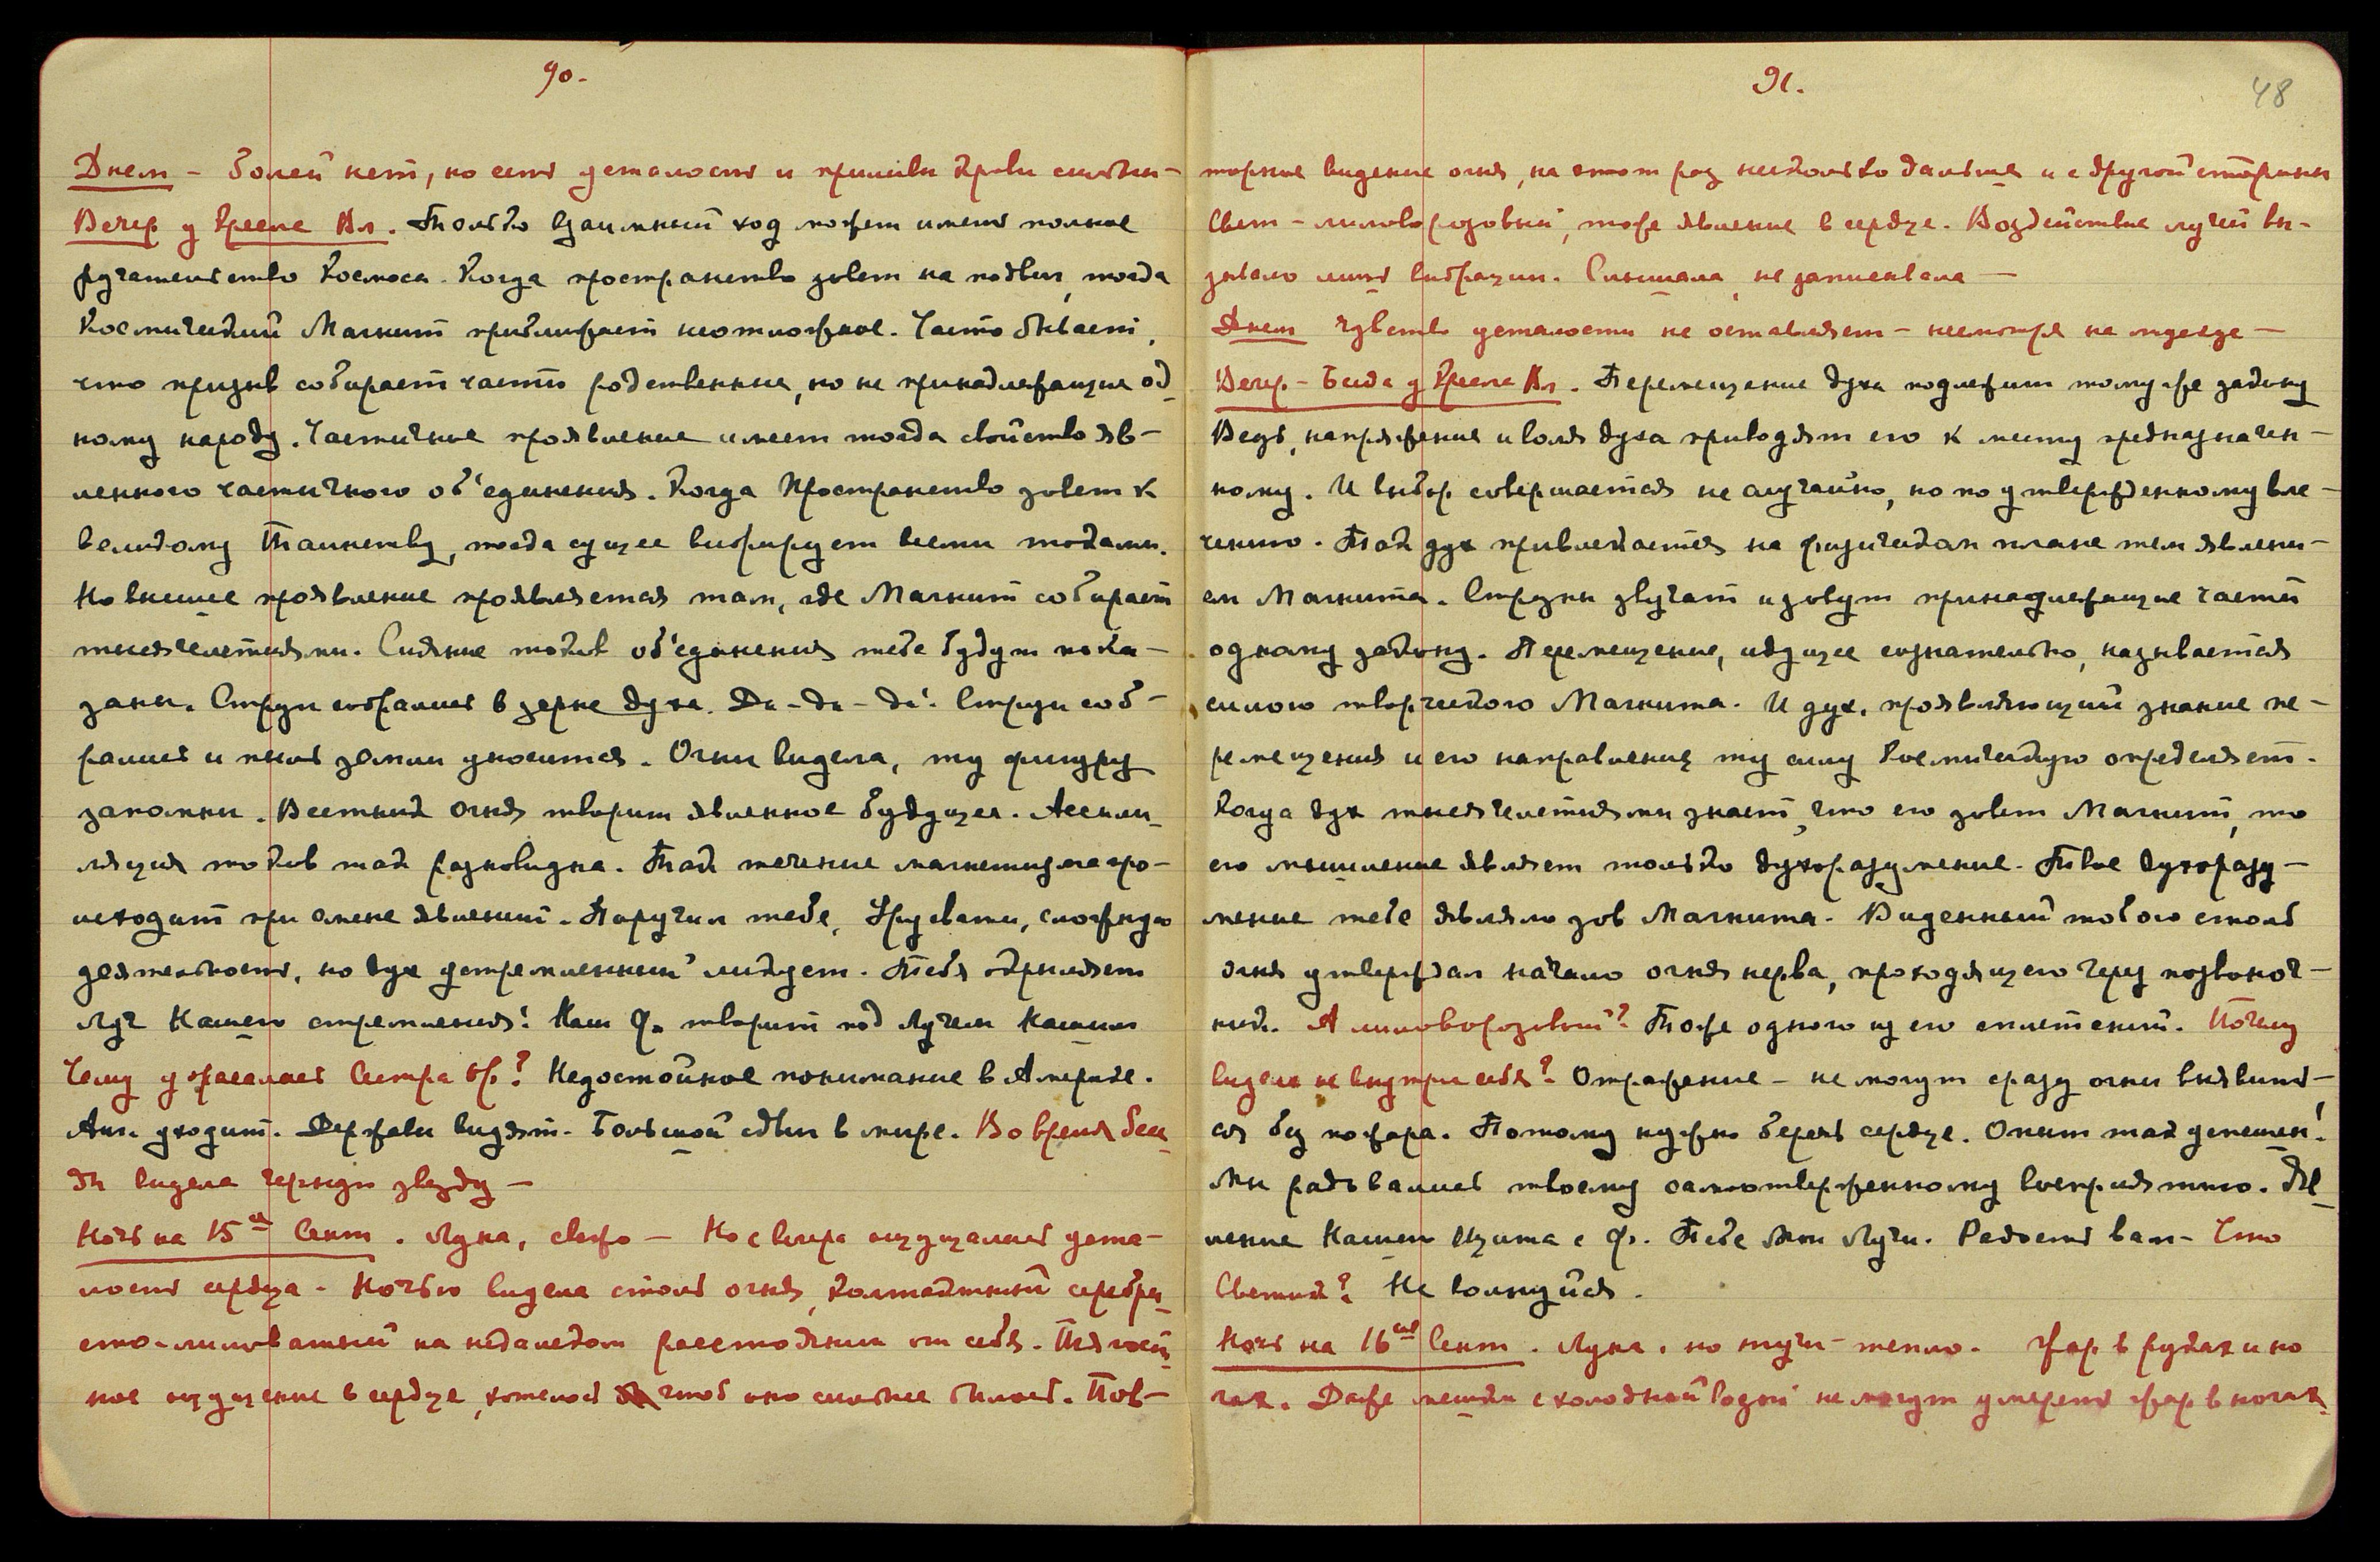 90.
Днем – болей нет, но есть усталость и приливы крови сильны –
Вечер у Кресла Вл. Только взаимный ход может иметь полное
ручательство Космоса. Когда пространство зовет на подвиг, тогда
Космический Магнит приближает неотложное. Часто бывает,
что призыв собирает части родственные, но не принадлежащие од-
ному народу. Частичное проявление имеет тогда свойство яв-
ленного частичного об'единения. Когда Пространство зовет к
великому Таинству, тогда сущее вибрирует всеми токами.
Но высшее проявление проявляется там, где Магнит собирает
тысячелетиями. Сияние токов об'единения тебе будут пока-
заны. Струи собрались в зерне духа. Да – да – да! Струи соб-
рались и пыль земли уносится. Огни видела, ту фигуру
запомни. Вестник огня творит явленное будущее. Ассими-
ляция токов так разновидна. Так течение магнетизма про-
исходит при смене явлений. Поручил тебе, Урусвати, сложную
деятельность, но дух устремленный ликует. Тебя окрыляет
Луч Нашего стремления! Наш Ф. творит под Лучем Нашим
Чему ужасалась Сестра Ор.? Недостойное понимание в Америке.
Анг. уходит. Держави видят. Большой сдвиг в мире. Во время бесе-
ды видела черную звезду –
Ночь на 15ое Сент. Луна, свежо – Но с вечера ощущалась уста-
лость сердца – Ночью видела столб огня, компактный серебри-
сто-лиловатый на недалеком расстоянии от себя. Тягост-
ное ощущение в сердце, хотелось чтоб оно сильнее билось. Пов-
91.
48
торное видение огня, на этот раз несколько дальше и с другой стороны
Свет – лилово розовый, тоже явление в сердце. Воздействие лучей вы-
зывало лишь вибрации. Слышала, не записывала –
Днем чувство усталости не оставляет – несмотря на
Вечер – Беседа у Кресла Вл. Перемещение духа подлежит тому же закону
Ведь, напряжение и воля духа приводят его к месту предназначен-
ному. И выбор совершается не случайно, но по утвержденному вле-
чению. Так дух привлекается на физическом плане тем явлени-
ем Магнита. Струны звучат и зовут принадлежащие части
одному закону. Перемещение, идущее сознательно, называется
силою творческого Магнита. И дух, проявляющий знание пе-
ремещения и его направления ту силу Космическую определяет.
Когда дух тысячелетиями знает, что его зовет Магнит, то
его мышление являет только духоразумение. Твое духоразу-
мение тебе являло зов Магнита. Виденный тобою столб
огня утверждал начало огня нерва, проходящего через позвоноч-
ник. А лиловорозовый? Тоже одного из его сплетений. Почему
видела не внутри себя? Отражение – не могут сразу огни выявить-
ся без пожара. Потому нужно беречь сердце. Опыт так успешен!
Мы радовались твоему самоотверженному восприятию. Яв-
ление Нашего Щита с Ф. Тебе Мои Лучи. Радость вам – Что
Светик? Не волнуйся.
Ночь на 16ое Сент. Луна, но тучи – тепло. Жар в руках и но
гах. Даже мешки с холодной водой не могут умерить жар в ногах.